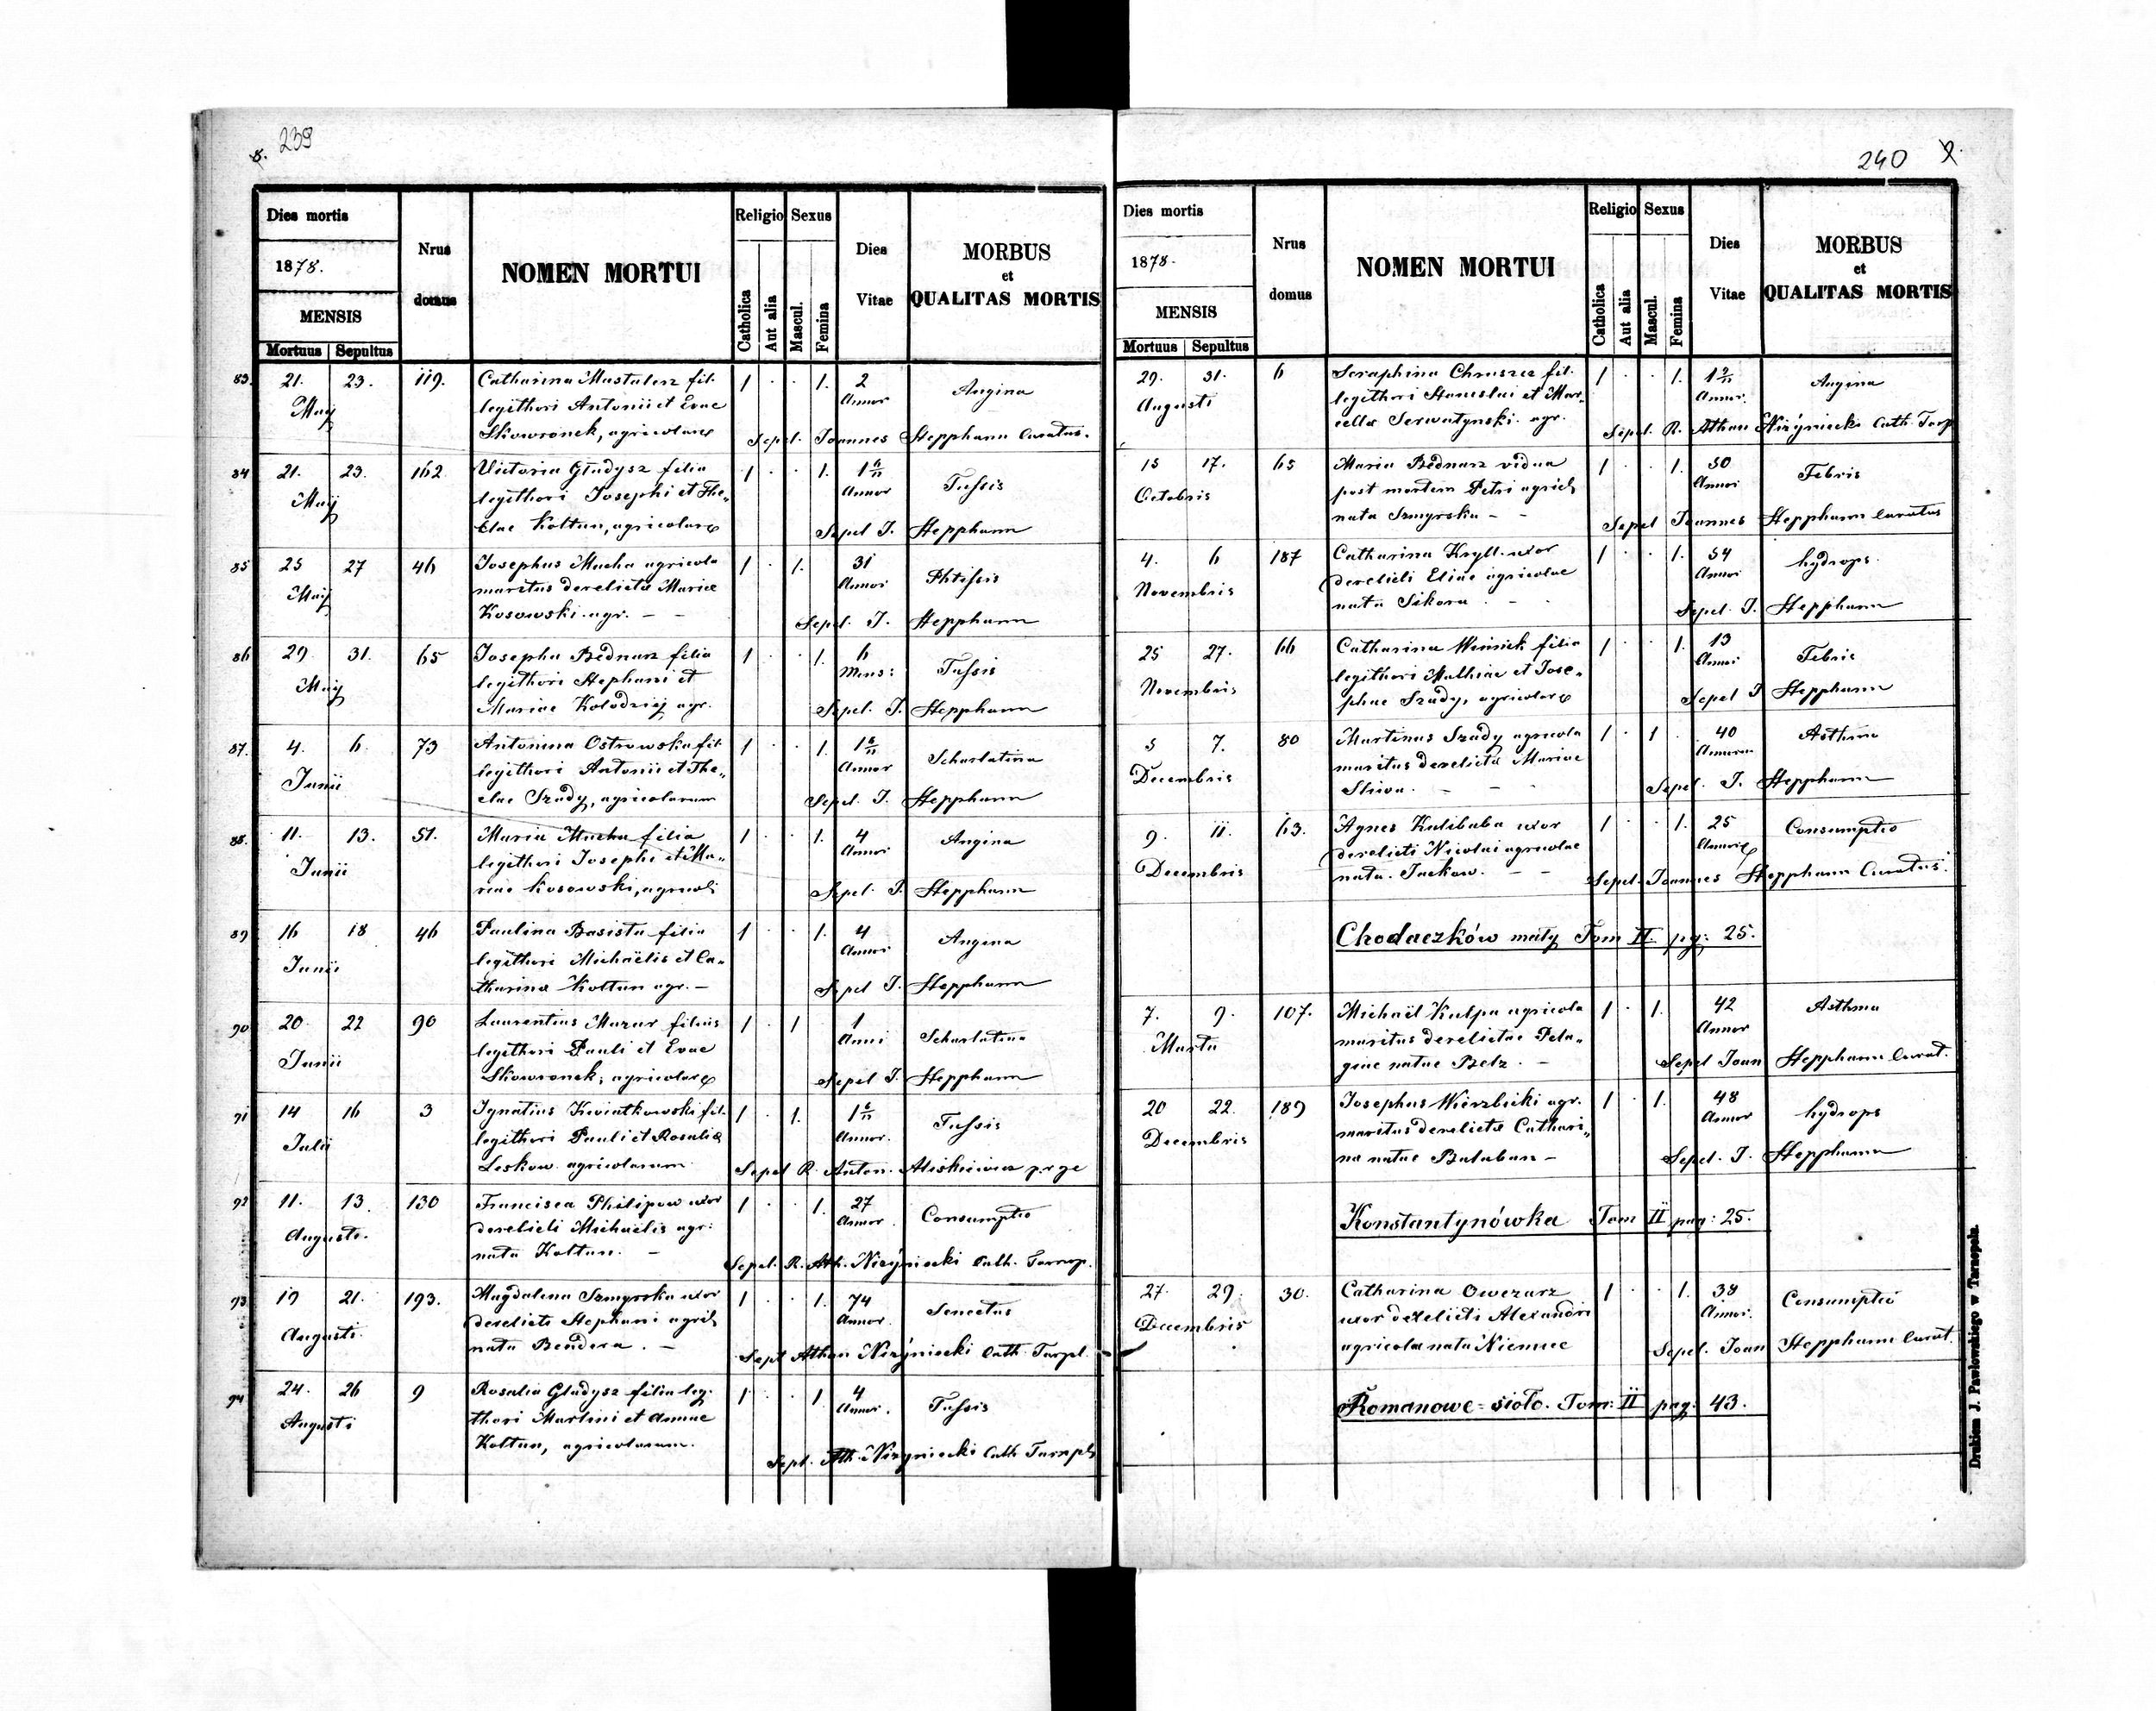 8. 239
Dies mortis
1878.
MENSIS
Mortuus Sepultus
Nrus domus
NOMEN MORTUI
Religio Sexus
Catholica Aut alia Mascul. Femina
Dies Vitae
MORBUS
et
QUALITAS MORTIS
83. 21. 23. 119. Catharina Mustalerz fil. 1 . . 1. 2 Angina
May legithori Antonii et Evae Annor
Skowronek, agricolarum Sepel. Joannes Stepphann Curatus.
84 21. 23. 162 Victoria Gładysz filia 1 . . 1. 1 6/12 Tussis
Maij legithori Josephi et The„ Annor
clae Kołtun, agricolarum Sepel J. Stepphann
85 25 27 46 Josephus Mucha agricola 1 . 1. 31 Phtissis
Maij maritus derelictae Mariae Annor
Kosowski agr. — Sepel. J. Stepphann
86 29 31. 65 Josepha Bednarz filia 1 . . 1. 6 Tussis
Maij legithori Stephani et Mens:
Mariae Kołodziej agr. Sepel. J. Stepphann
87. 4. 6. 73 Antonina Ostrowska fil. 1 . . 1. Scharlatina
Junii legithori Antonii et The„ Annor
clae Szady, agricolarum Sepel. J. Stepphann
88. 11. 13. 51. Maria Mucha filia 1 . . 1. 4 Angina
Junii legithori Josephi et Ma„ Annor
riae Kosowski, agricol. Sepel. J. Stepphann
89 16 18 46 Paulina Basista filia 1 . . 1. 4 Angina
Junii legithori Michaëlis et Ca„ Annor
tharina Kołtun agr. — Sepel J. Stepphann
90 20 22 90 Laurentius Mazur filius 1 . 1 1 Scharlatina
Junii legithori Pauli et Evae Anni
Skowronek, agricolarum Sepel J. Stepphann
91 14 16 3 Ignatius Kwiatkowski fil. 1 . 1. Tussis
Julii legithori Pauli et Rosaliae Annor.
Leskow agricolarum Sepel R. Anton.
92 11. 13. 130 Francisca Philipow uxor 1 . . 1. 27 Consumptio
Augusti. derelicti Michaëlis agr: Annor.
nata Kołtun. — Sepel. R. Ath. Niżyniecki Cath. Tarnop.
93 19 21. 193. Magdalena Szmyrska uxor 1 . . 1. 74 Senectus
Augusti derelicti Stephani agric. Annor.
nata Bendera. — Sepel Athan Niżyniecki Cath. Tarpl.
94 24. 26 9 Rosalia Gładysz filia leg. 1 . . 1 4 Tussis
Augusti thori Martini et Annae Annor.
Kołtun, agricolarum. Sepl. Ath. Niżyniecki Cath. Tarnpl.
240
Dies mortis
1878.
MENSIS
Mortuus Sepultus
Nrus domus
NOMEN MORTUI
Religio Sexus
Catholica Aut alia Mascul. Femina
Dies Vitae
MORBUS
et
QUALITAS MORTIS
29. 31. 6 Seraphina Chruszcz fil. 1 . . 1. Angina
Augusti legithori Stanislai et Mar„ Annor.
cella Serwatynski. agr. Sepel. R. Athan Niżyniecki Cath. Tarp
15 17. 65 Maria Bednarz vidua 1 . . 1. 50 Febris
Octobris post mortem Petri agric. Annor
nata Szmyrska — — Sepel Joannes Stepphann Curatus
4. 6 187 Catharina Kryll. uxor 1 . . 1. 54 hydrops
Novembris derelicti Eliae agricolae Annor
nata Sikora. — Sepel. J. Stepphann
25 27. 66 Catharina Winnik filia 1 . . 1. 13 Febris
Novembris legithori Mathiae et Jose„ Annor
phae Szady, agricolarum Sepel J Stepphann
5 7. 80 Martinus Szady agricola 1 . 1 . 40 Asthma
Decembris maritus derelictae Mariae Annorum
Śliwa. — — Sepel. J. Stepphann
9. 11. 63. Agnes Kulibaba uxor 1 . . 1. 25 Consumptio
Decembris derelicti Nicolai agricolae Annor
nata. Jackow. — — Sepel. Joannes Stepphann Curatus.
Chodaczków mały Tom II. pg: 25.
7. 9. 107. Michaël Kulpa agricola 1 . 1. 42 Asthma
Martii maritus derelictae Pela„ Annor
giae natae Belz. — Sepel Joan Stepphann Curat.
20 22. 189 Josephus Wierzbicki agr. 1 . 1. 48 hydrops
Decembris maritus derelictae Cathari„ Annor
na natae Bałaban — Sepel. J. Stepphann
Konstantynówka Tom II pag: 25.
27. 29. 30. Catharina Owczarz 1 . . 1. 38 Consumptio
Decembris uxor derelicti Alexandri Annor.
agricolae nata Niemiec Sepel. Joan Stepphann Curat.
Romanowe-sioło. Tom: II pag: 43.
Drukiem J. Pawłowskiego w Tarnopolu.